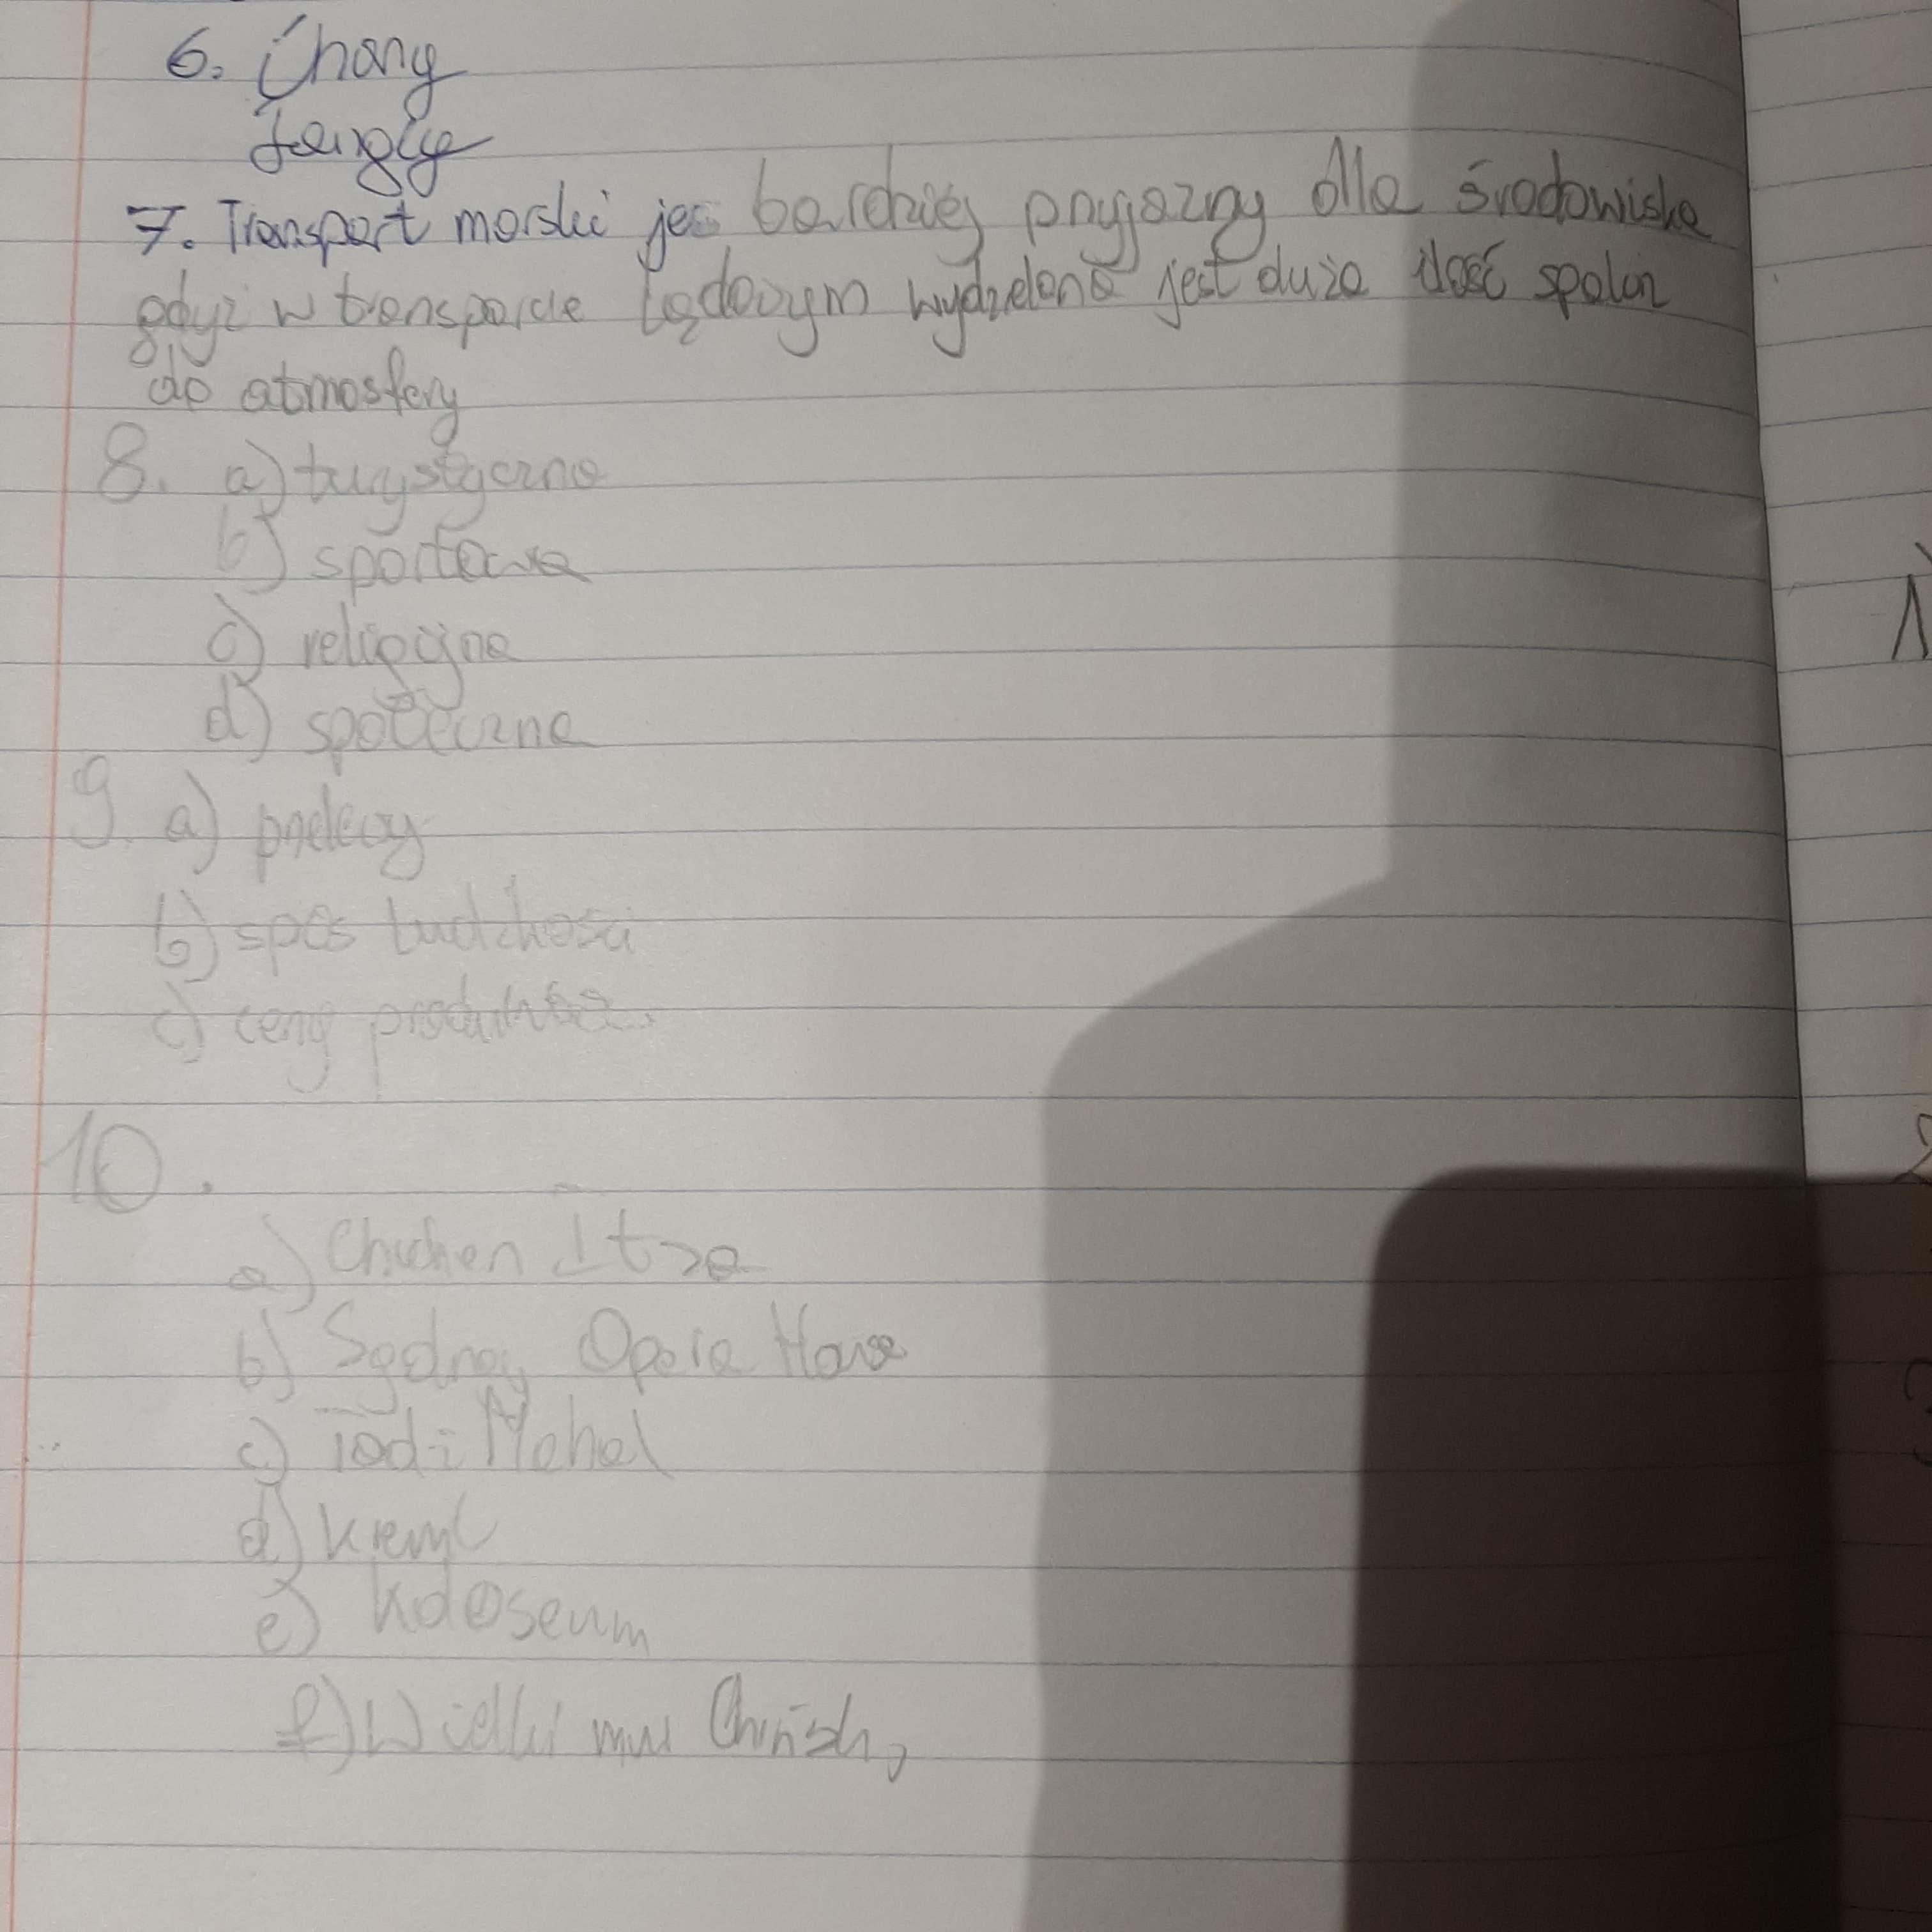 6. Chiny
7. Transport morski jes bardziej przyjazny dla środowiska
gdyż w transporcie lądowym wydzielana jest duża ilość spalin
do atmosfery
8. a) turystyczna
b) sportowa
c) religijna
d) społeczna
9. a)
b) ludzkości
c) ceny
10.
a) Chichen Itza
b) Sydney Opera House
c) Tadż Mahal
d) Kreml
e) Koloseum
f) Wielki mur Chiński
1
2